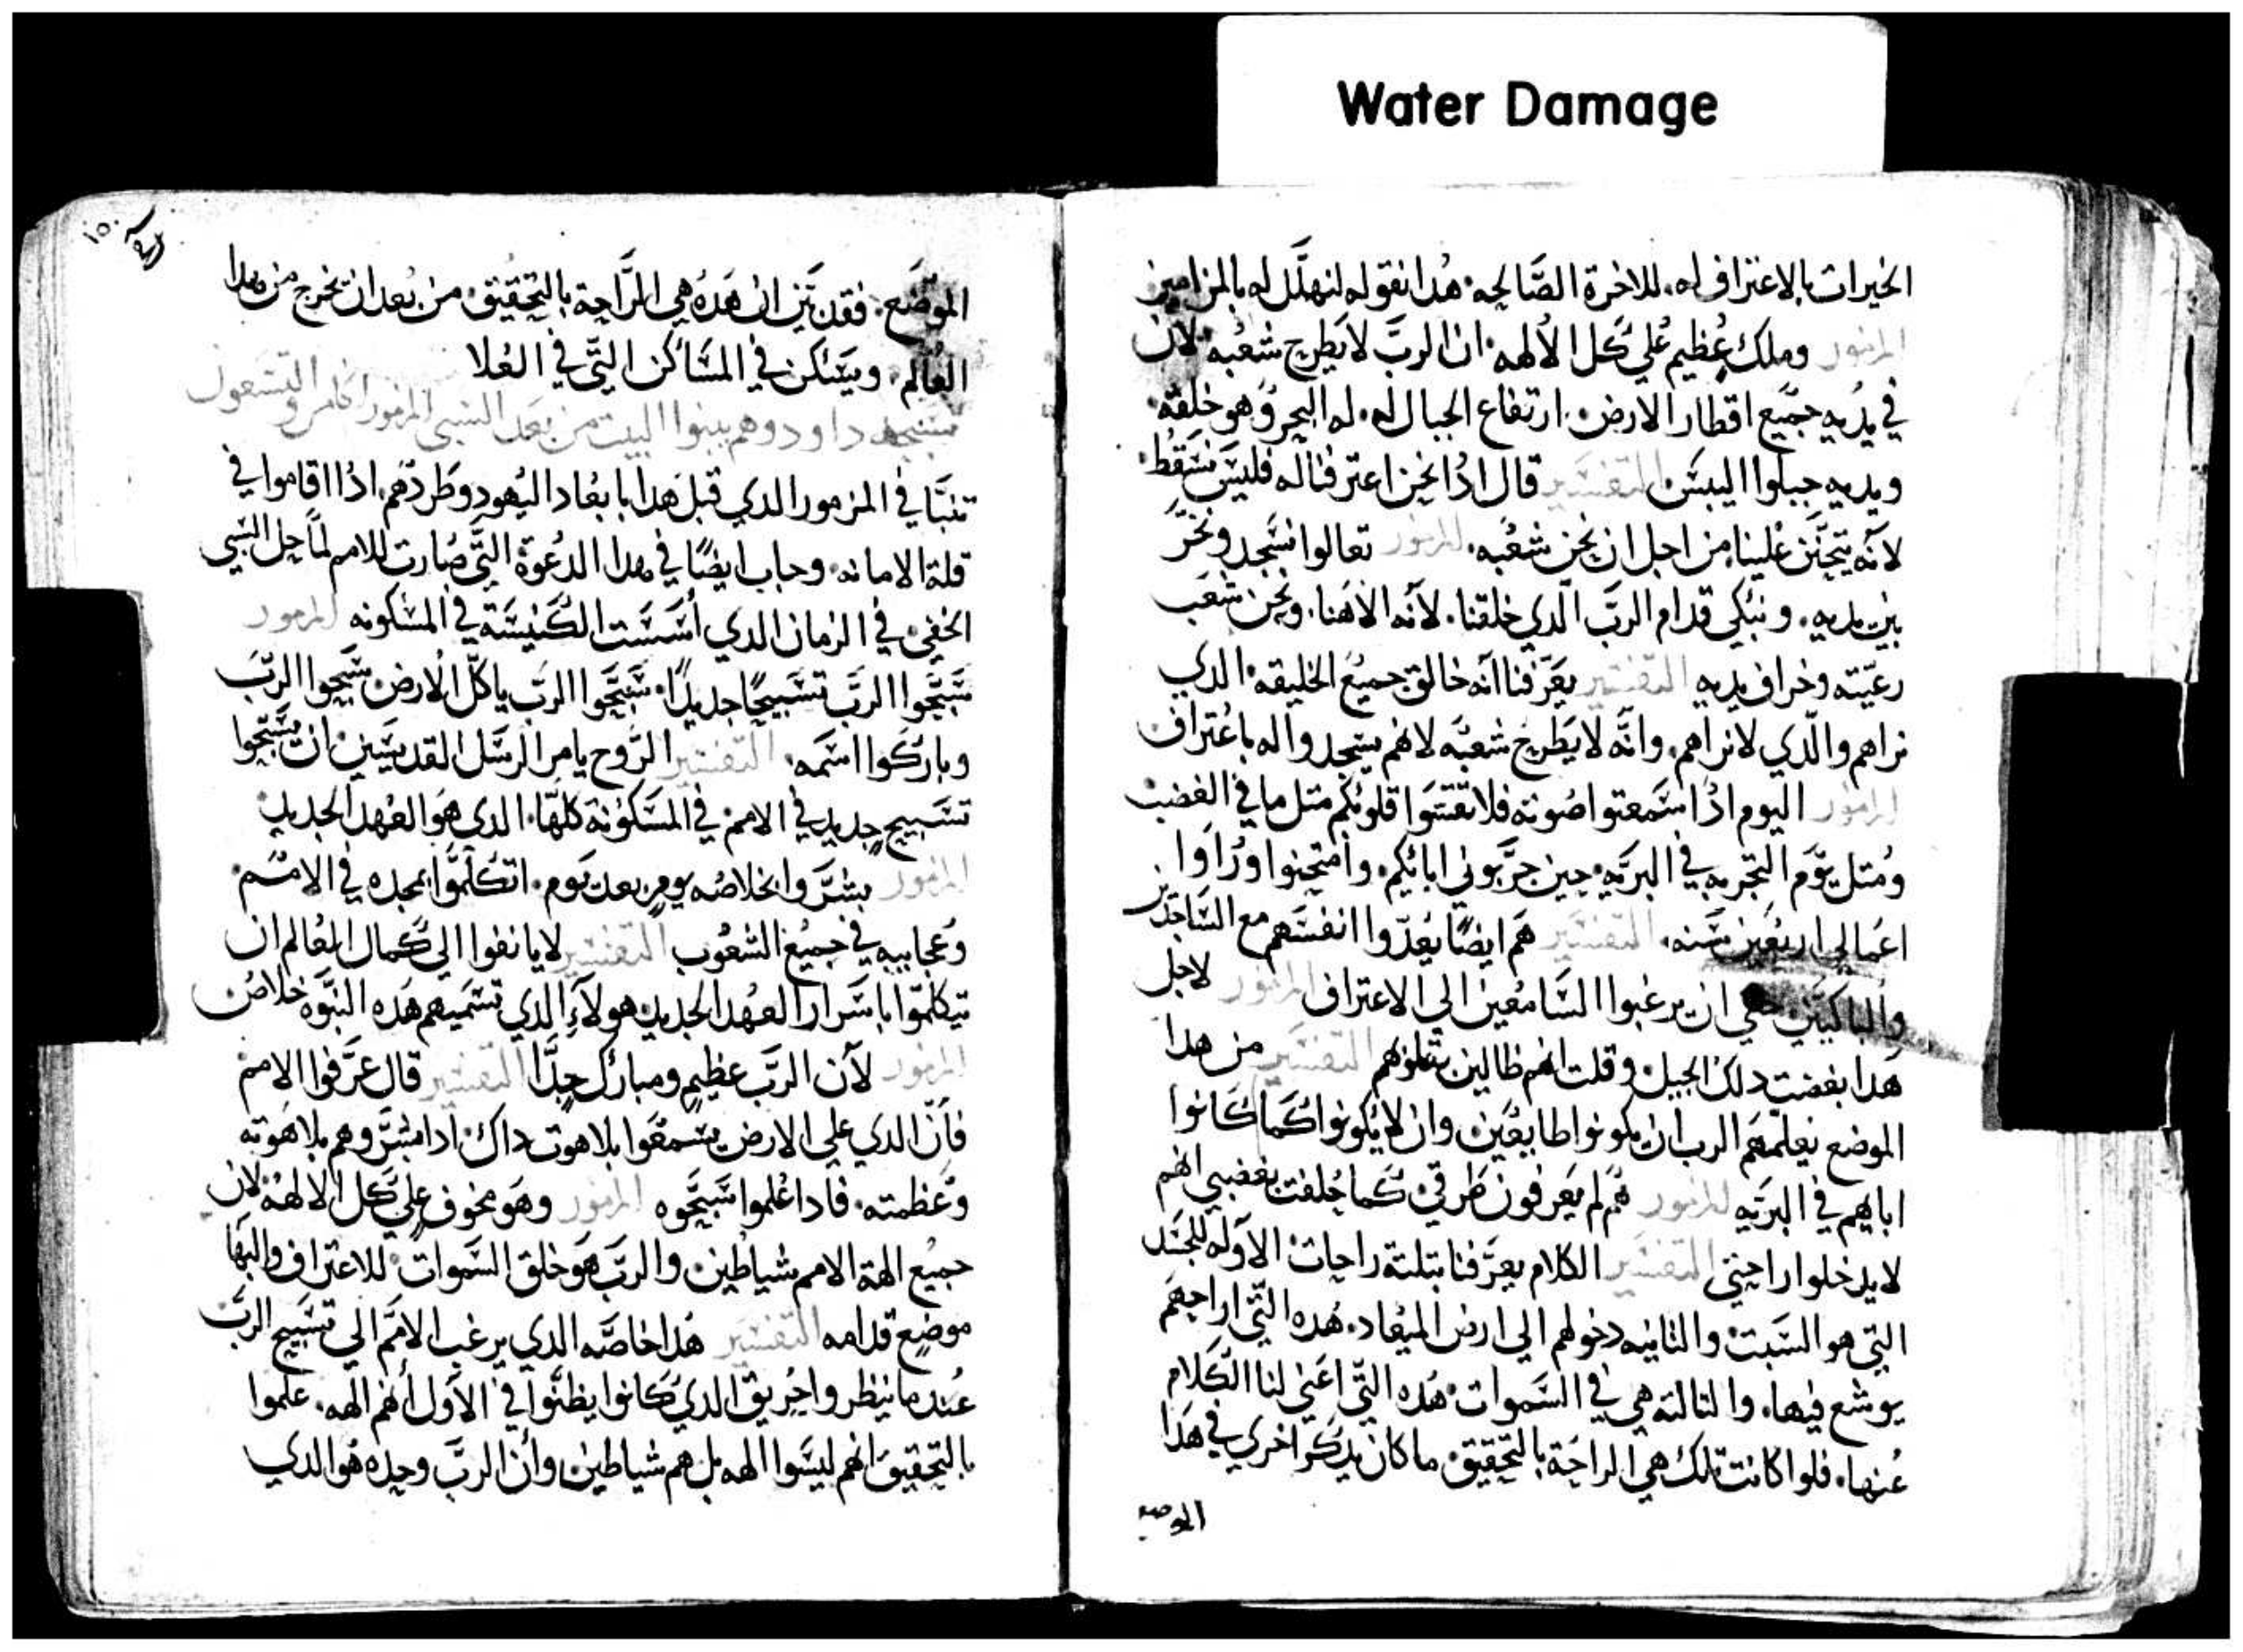 Water Damage
الخيرات بالاعتراف له. للاخرة الصالحه. هدا نقوله لنهلل له بالمزامير
المزمور وملك عظيم على كل الالهه. ان الرب لا يطرح شعبه لان
في يديه جميع اقطار الارض. ارتفاع الجبال له. له البحر وهو خلقه.
ويديه جبلوا اليبس التفسير قال ادا نحن اعترفنا له فليس نسقط.
لانه يتحنن علينا من اجل ان نحن شعبه. المزمور تعالوا نسجد ونخر
بين يديه. ونبكي قدام الرب الدي خلقنا. لانه الاهنا. ونحن شعب
رعيته وخراف يديه التفسير يعرفنا انه خالق جميع الخليقه الدي
نراهم والدي لا نراهم. وانه لا يطرح شعبه لانهم يسجدوا له باعتراف
المزمور اليوم ادا سمعتوا صوته فلا تقسوا قلوبكم متل ما في الغضب
ومتل يوم التجربه في البريه. حين جربوني ابائكم. وامتحنوا وراوا
اعمالي اربعين سنه. التفسير هم ايضا يعدوا انفسهم مع الساجدين
والباكين حتي ان يرغبوا السامعين الي الاعتراف المزمور لاجل
هدا بغضت دلك الجيل وقلت انهم ظالين بقلوبهم التفسير من هدا
الموضع يعلمهم الرب ان يكونوا طايعين وان لا يكونوا كما كانوا
ابايهم في البريه المزمور هم لم يعرفون طرقي كما حلفت بغضبي انهم
لا يدخلوا راحتي التفسير الكلام يعرفنا بتلتة راحات الاوله للجسد
التي هو السبت والتانيه دخولهم الي ارض الميعاد. هده التي اراحهم
يوشع فيها. والتالته هي في السموات هده التي اعني لنا الكلام
عنها. فلوا كانت تلك هي الراحة بالتحقيق ما كان يدكر اخري في هدا
الموضع
١٥٠
الموضع. فقد تبين ان هده هي الراحة بالتحقيق من بعد ان يخرج من هدا
العالم. ويسكن في المساكن التي في العلا
داوود وهم يبنوا البيت من بعد السبي المزمور
تنبا في المزمور الدي قبل هدا بابعاد اليهود وطردهم ادا اقاموا في
قلة الامانه. وجاب ايضا في هدا الدعوة التي صارت للامم لما حل السبي
الخفي في الزمان الدي أسست الكنيسة في المسكونه المزمور
سبحوا الرب تسبيحا جديدا. سبحوا الرب يا كل الارض سبحوا الرب
وباركوا اسمه. التفسير الروح يامر الرسل القديسين ان يسبحوا
تسبيح جديد في الامم في المسكونة كلها. الدي هو العهد الجديد
المزمور بشروا بخلاصه يوم بعد يوم. اتكلموا بمجده في الامم.
وعجايبه في جميع الشعوب التفسير لا يانفوا الي كمال العالم ان
تيكلموا باسرار العهد الجديد هولاء الدي تسميهم هده النبوه خلاص
المزمور لان الرب عظيم ومبارك جدا التفسير قال عرفوا الامم
فان الدي علي الارض يسمعوا بلاهوت داك ادا بشروهم بلاهوته
وعظمته. فادا علموا سبحوه المزمور وهو مخوف علي كل الالهة لان
جميع الهة الامم شياطين والرب هو خلق السموات للاعتراف والبها
موضع قدامه التفسير هدا خاصه الدي يرغب الامم الي تسبيح الرب
عندما ينظروا حريق الدي كانوا يظنوا في الاول انهم الهه. علموا
بالتحقيق انهم ليسوا الهه بل هم شياطين وان الرب وحده هو الدي